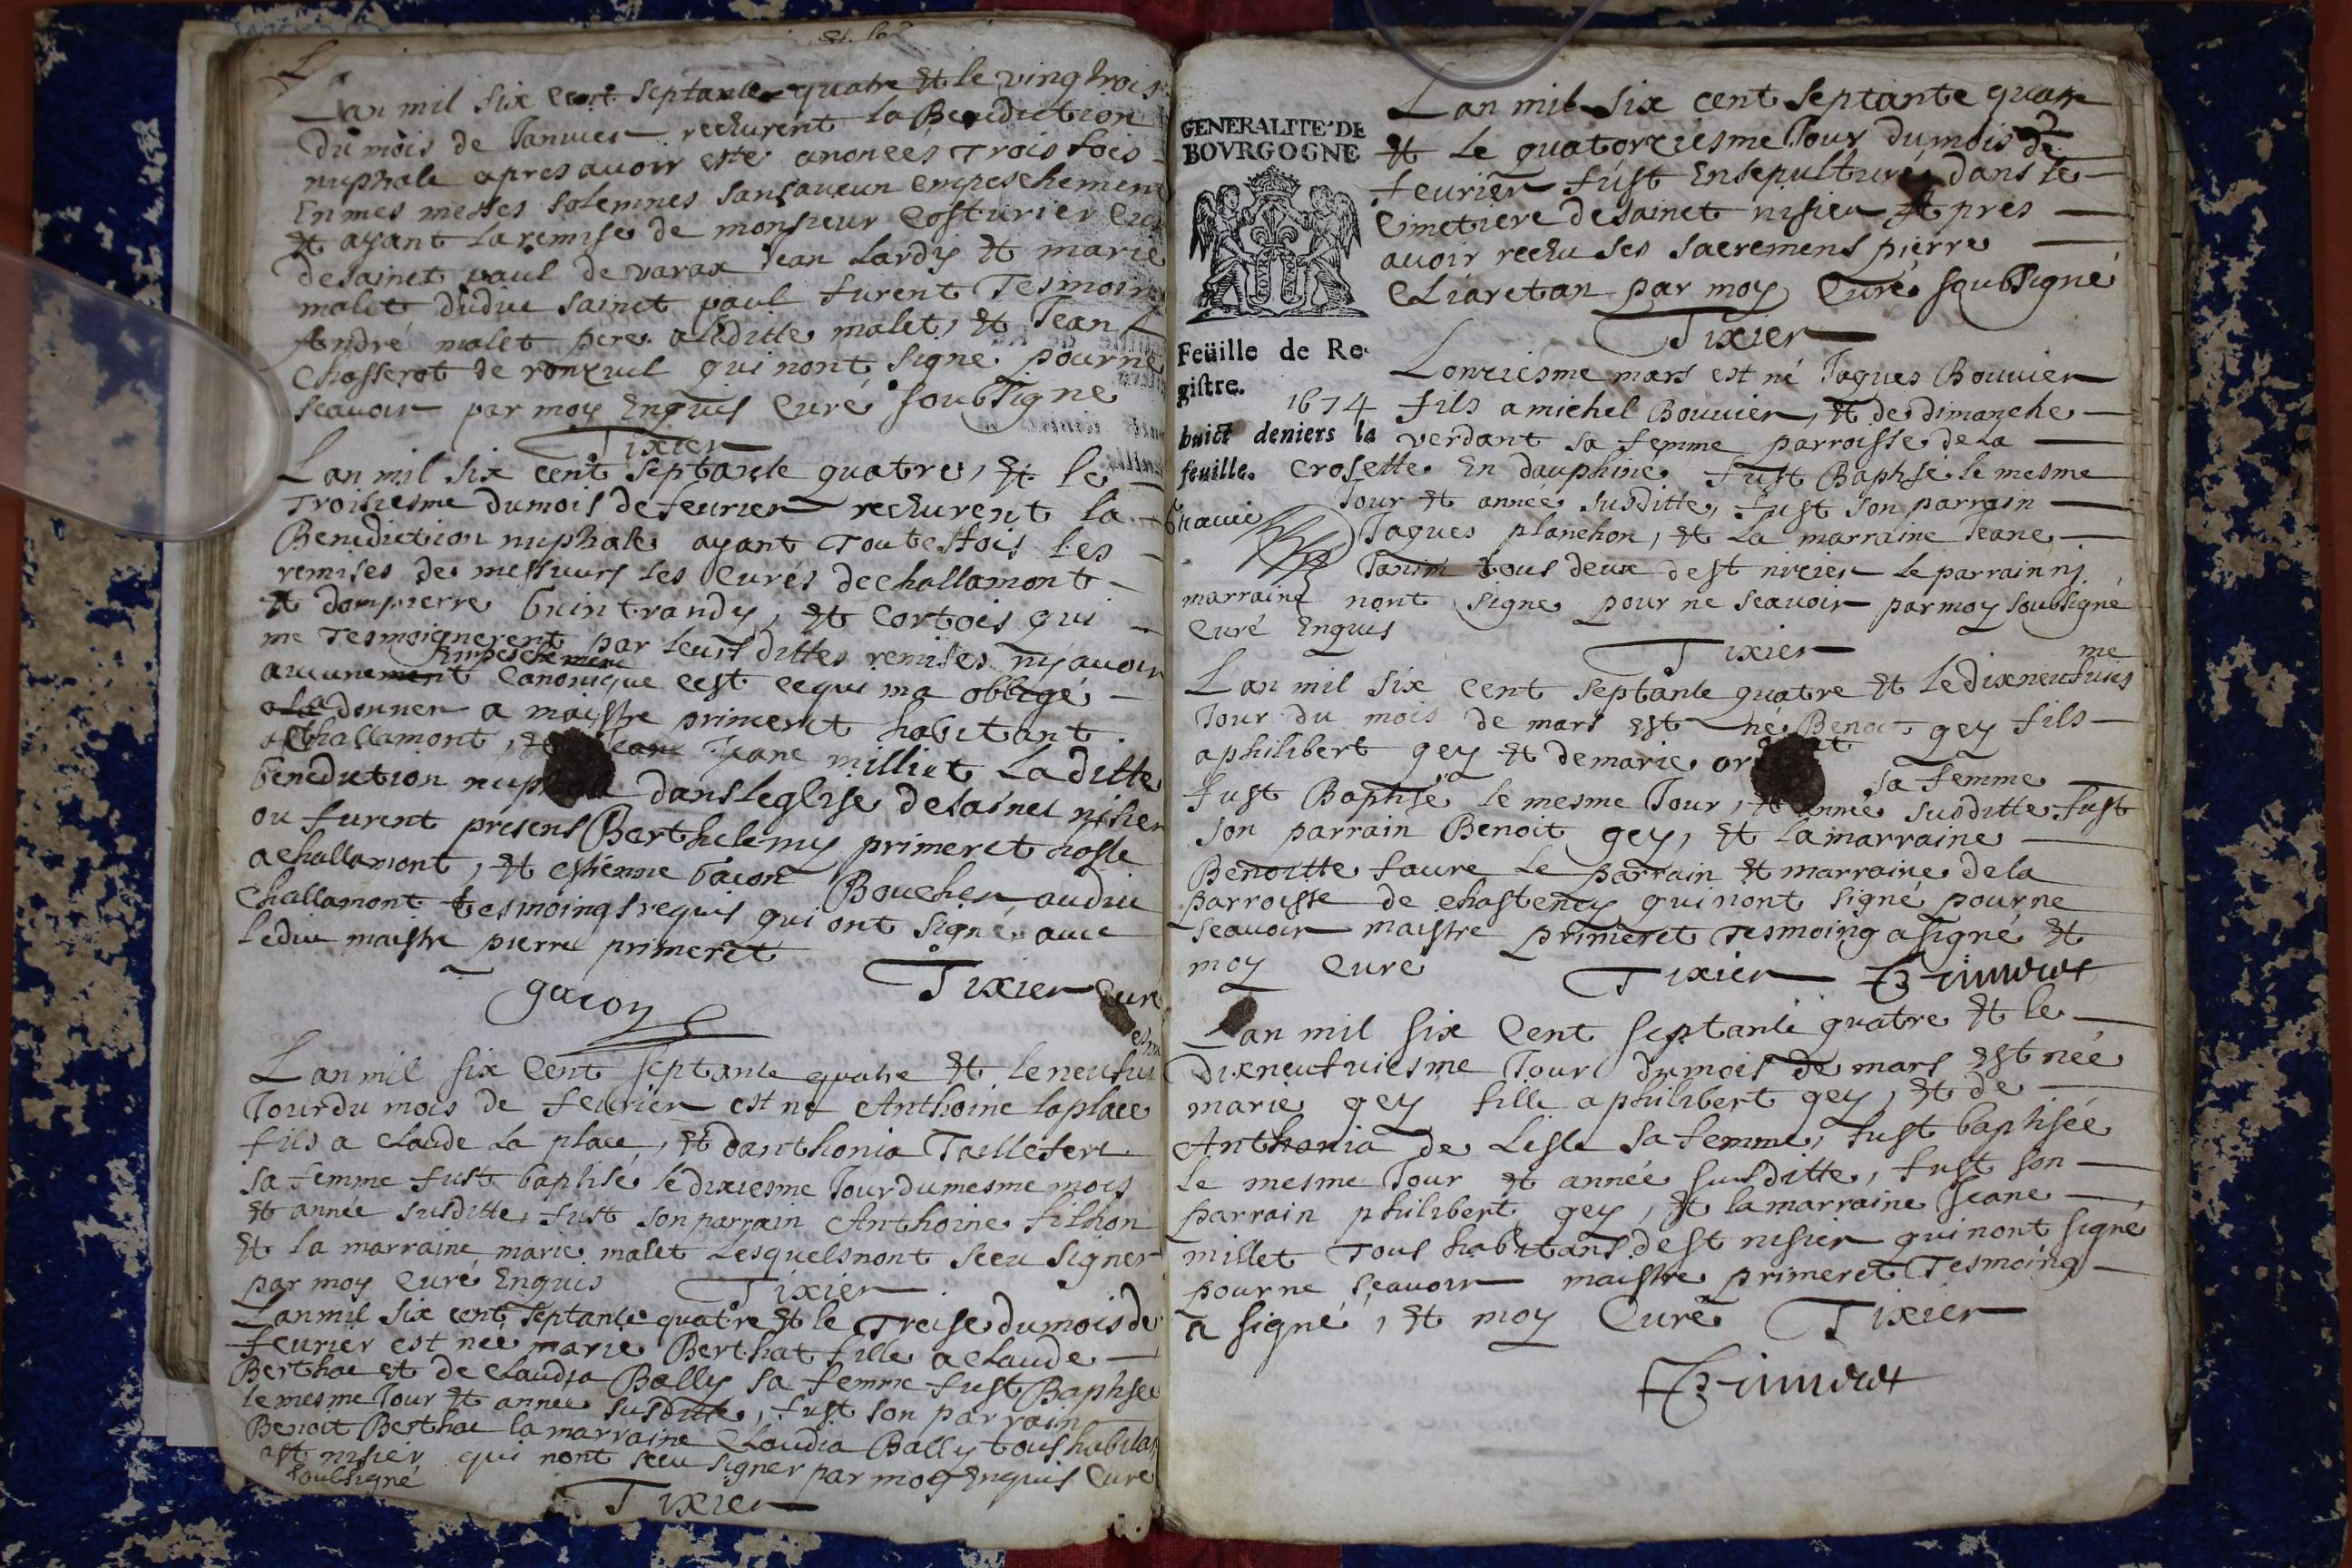 Lan mil six cent septante quatre et le vingtrois
du mois de Janvier rechurent la Benediction
nuptiale apres avoir esté anoncés trois fois
En mes messes solemnes sans aucun empeschement
et ayant la remise de monsieur Costurier Curé
de sainct paul de varax Jean Lardy et marie
malet dudict sainct paul furent Tesmoins
André malet pere a laditte malet, et Jean
Chasserot de ronzuel qui nont signé pour ne
scavoir par moy Enquis Curé soubsigné
Tixier
Lan mil six cent septante quatre, et le
Troisiesme du mois de fevrier rechurent la
Benediction nuptiale ayant Toutesfois les
remises de messieurs les Curés de challamont
et dompierre Guintrandy, et Cortois qui
me Tesmoignerent par leurs dittes remises ny avoir
Empeschement
aucunement Canonique cest ce qui ma obligé
a la donner a maistre primeret habitant
a Challamont, et Jeane milliet La ditte
benediction nuptiale dans leglise de sainct nisier
ou furent presens Barthelemy primeret hoste
a challamont, et estienne Gacon Boucher audict
Challamont tesmoings requis qui ont signé avec
ledict maistre pierre primeret
gacon Tixier Curé
esme
Lan mil six Cent septante quatre et le neufvi
Jour du mois de fevrier est né Anthoine laplace
fils a Claude La place, et danthonia Taillefert
sa femme fust baptisé le dixiesme Jour du mesme mois
et année susditte, fust son parrain Anthoine fillion
et la marraine marie malet Lesquels nont sceu signer
par moy Curé Enquis Tixier
Lan mil six cent septante quatre et le Treise du mois de
fevrier est née marie Berthat fille a Claude
Berthac et de Claudia Bally sa femme fust Baptisée
le mesme Jour et année susditte, fust son parrain
Benoit Berthac la marraine Claudia Bally tous habitans
a st nisier qui nont sceu signer par moy Enquis Curé
soubsigné
Tixier
Lan mil six cent septante quatre
et le quatorziesme Jour du mois de
fevrier fust Ensepulturé dans le
Cimetiere de sainct nisier et pres
avoir rechu ses sacremens pierre
Cliaretan par moy Curé soubsigné
Tixier
GENERALITE' DE
BOVRGOGNE
Feüille de Re-
gistre.
1674
huict deniers la
feuille.
Lonziesme mars est né Jaques Bouvier
fils a michel Bouvier, et de dimanche
verdant sa femme parroisse de la
Crosette En dauphiné fust Baptisé le mesme
Jour et année susditte, fust son parrain
Jaques planchon, et La marraine Jeane
Janin tous deux de st nizier le parrain ny
marraine nont signe pour ne scavoir par moy soubsigné
Curé Enquis
Tixier
me
Lan mil six cent septante quatre et le dixneufvies
Jour du mois de mars est né Benoit gey fils
a philibert gey et de marie sa femme
fust Baptisé le mesme Jour, et année susditte fust
son parrain Benoit gey, et la marraine
Benoitte faure Le parrain et marraine de la
parroisse de chasteney qui nont signé pour ne
scavoir maistre primeret Tesmoing a signé et
moy Curé Tixier Primeret
Lan mil six Cent septante quatre et le
dixneufviesme Jour du mois de mars est née
marie gey fille a philibert gey, et de
Anthonia de Lisle sa femme, fust baptisée
Le mesme Jour et année susditte, fust son
parrain philibert gey, et la marraine Jeane
millet Tous habitans de st nisier qui nont signé
pour ne scavoir maistre primeret Tesmoing
a signé, et moy Curé Tixier
Primeret